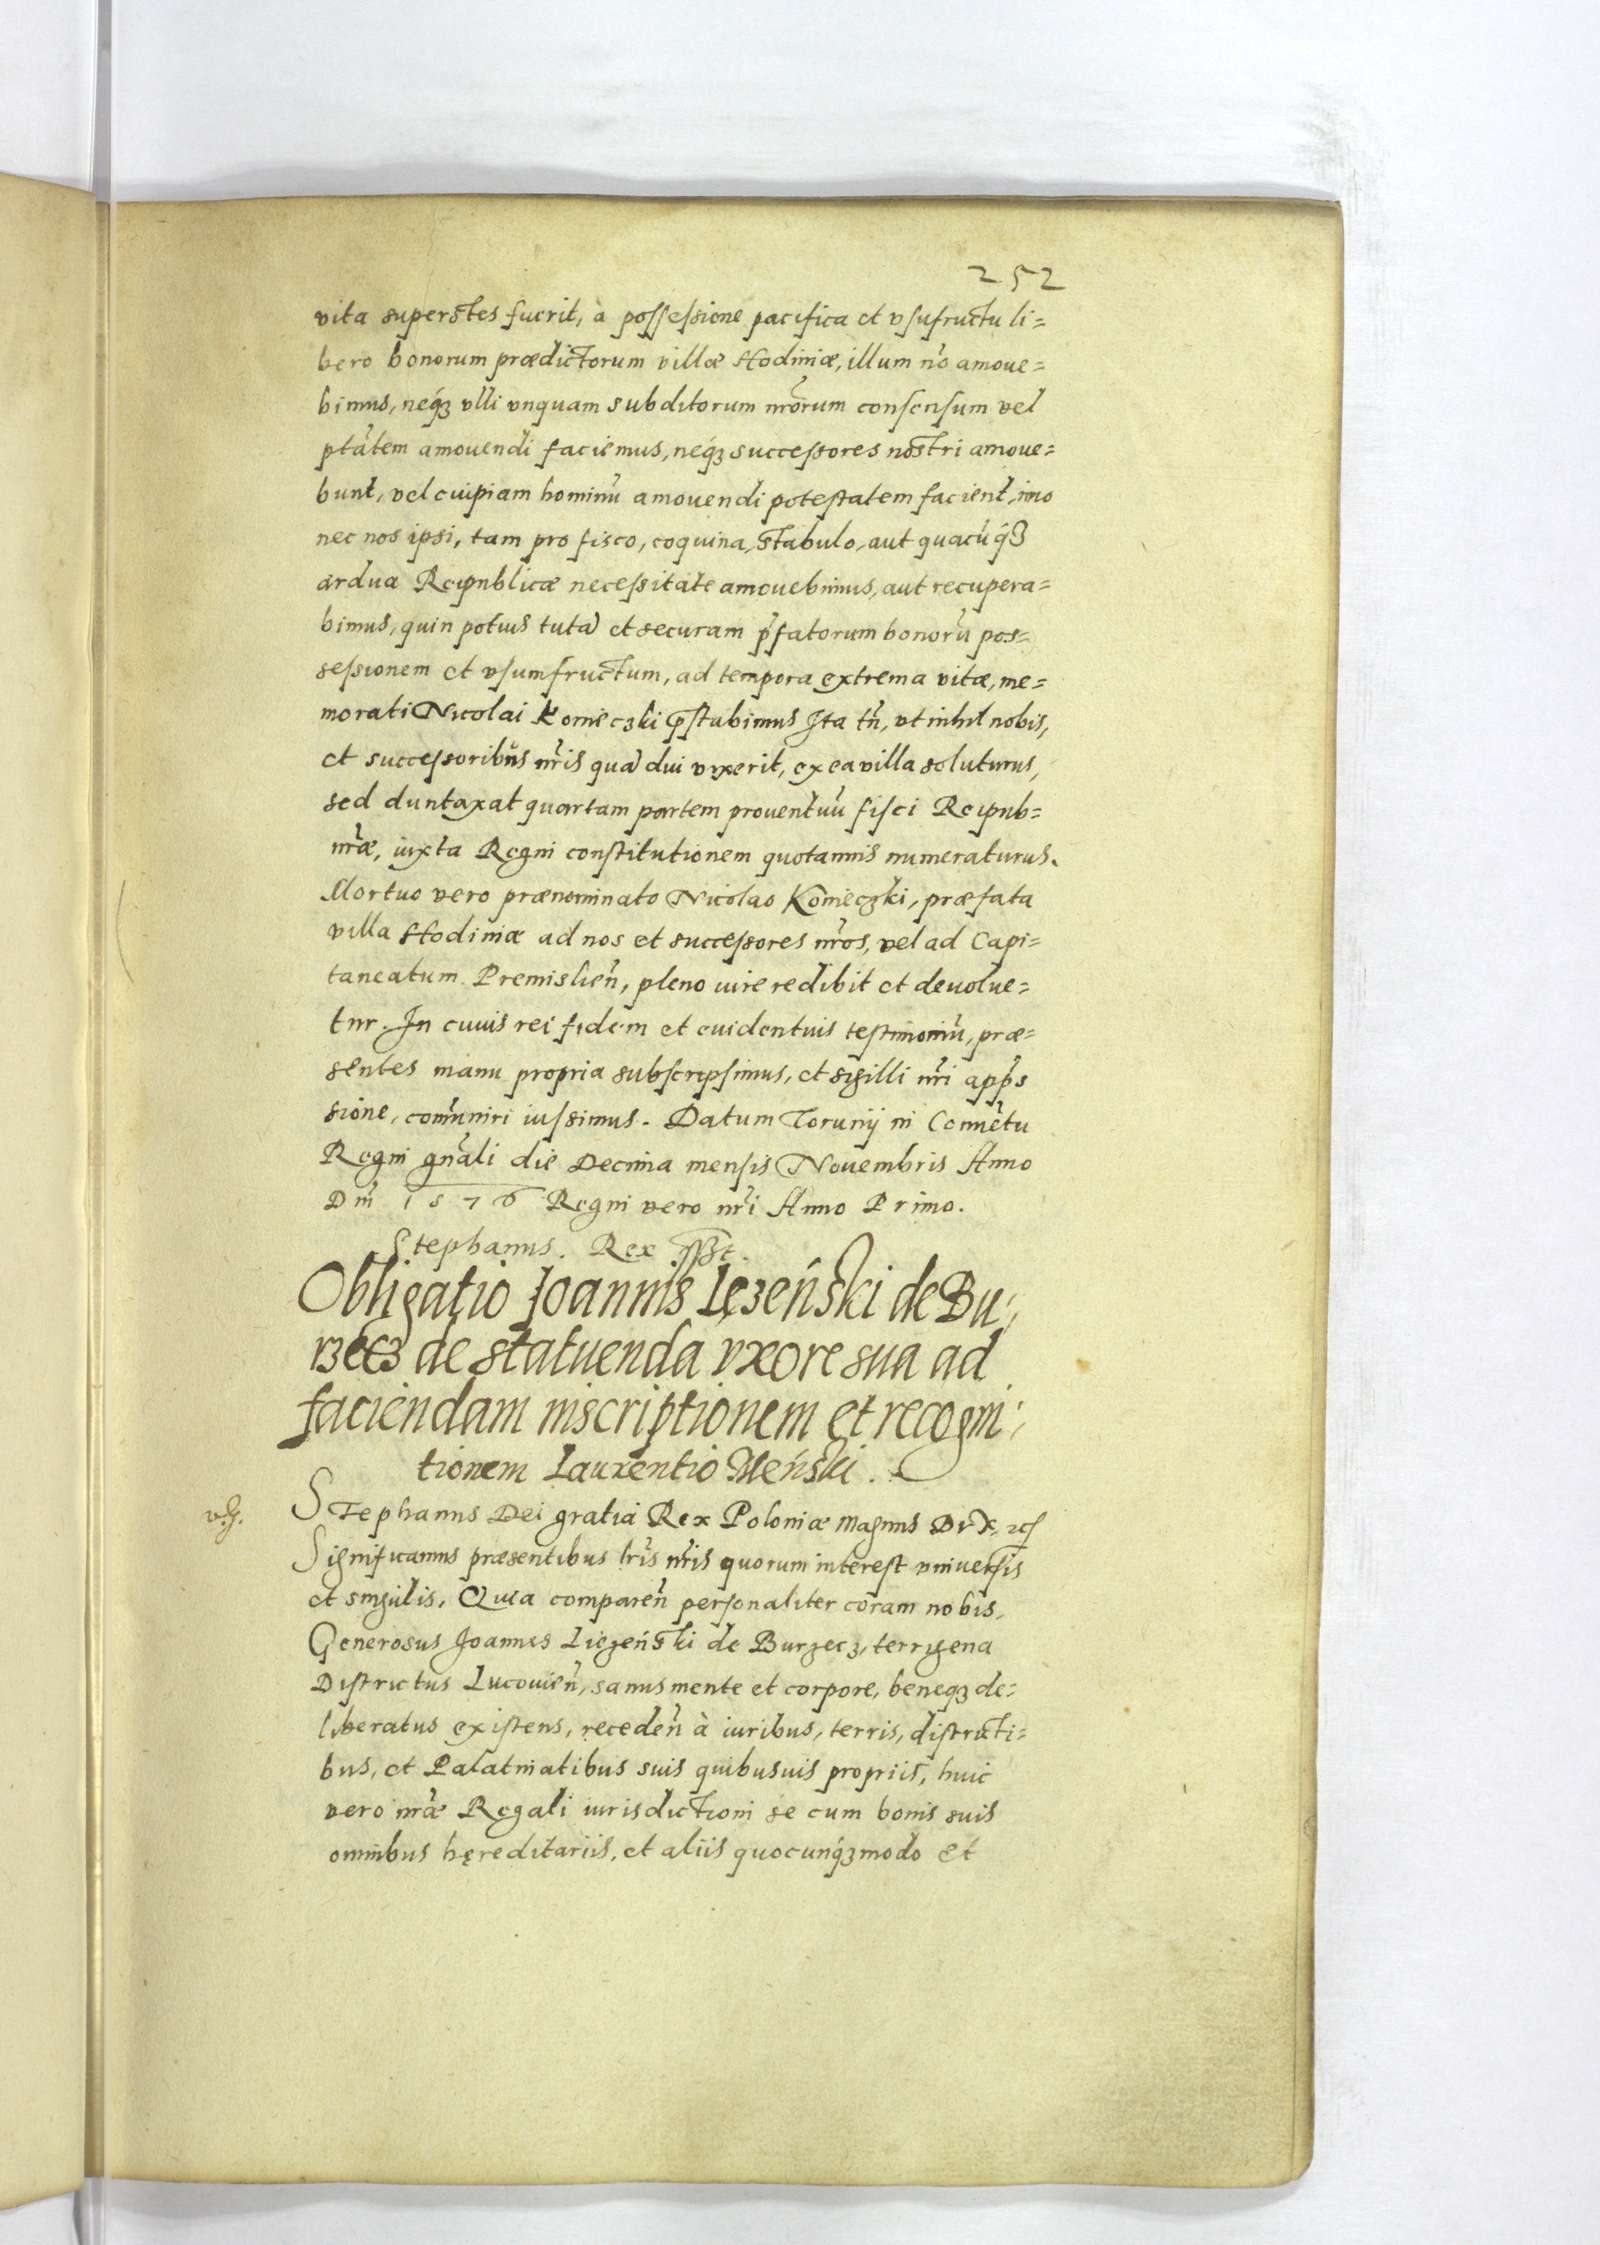 252
vita superstes fuerit, à possessione pacifica et vsufructu li=
bero bonorum prædictorum villæ Hodiniæ, illum nõ amoue=
bimus, neq3 vlli vnquam subditorum nrõrum consensum vel
ptãtem amouendi faciemus, neq3 successores nostri amoue=
bunt, vel cuipiam hominũ amouendi potestatem facient, imo
nec nos ipsi, tam pro fisco, coquina, stabulo, aut quacũq3
ardua Reipublicæ necessitate amouebimus, aut recupera=
bimus, quin potius tutã et securam p̃fatorum bonorũ pos=
sessionem et vsumfructum, ad tempora extrema vitæ, me=
morati Nicolai Konieczki p̃stabimus Ita tñ, vt nihil nobis,
et successoribus nr̃is quã diu vixerit, ex ea villa soluturus,
sed duntaxat quartam partem prouentuũ fisci Reipub=
nrãe, iuxta Regni constitutionem quotannis numeraturus.
Mortuo vero prænominato Nicolao Konieczki, præfata
villa Hodiniæ ad nos et successores nr̃os, vel ad Capi=
taneatum Premislieñ, pleno iure redibit et deuolue=
tur. In cuius rei fidem et euidentius testimoniũ, præ=
sentes manu propria subscripsimus, et sigilli nr̃i app̃s
sione, com̃uniri iussimus. Datum Torunij in Conuẽtu
Regni gnãli die Decima mensis Nouembris Anno
Dñi 1576 Regni vero nr̃i Anno Primo.
Stephanus. Rex sszt.
Obligatio Joannis Lęzeński de Bu=
rzecz de statuenda vxore sua ad
faciendam inscriptionem et recogni=
tionem Laurentio Meński.
Stephanus Dei gratia Rex Poloniæ Magnus Dux, etc
Significamus præsentibus lr̃is nr̃is quorum interest vniuersis
et singulis, Quia compareñ personaliter coram nobis,
Generosus Joannes Liezeński de Burzecz, terrigena
Districtus Lucouieñ, sanus mente et corpore, beneq3 de=
liberatus existens, recedeñ à iuribus, terris, districti=
bus, et Palatinatibus suis quibusuis propriis, huic
vero nr̃æ Regali iurisdictioni se cum bonis suis
omnibus hęreditariis, et aliis quocunq3 modo et